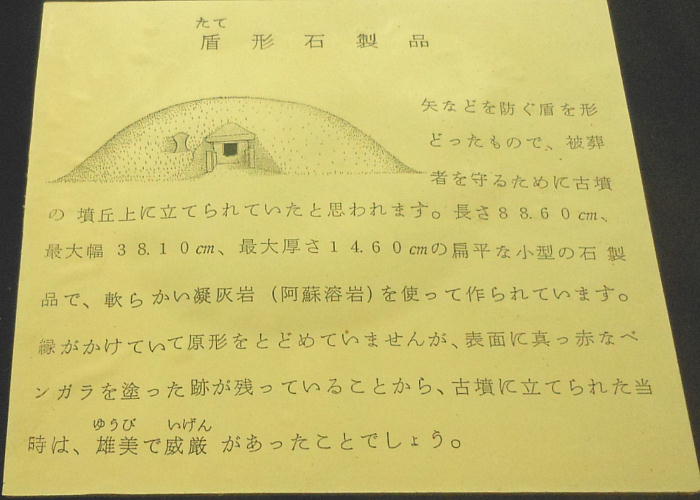 たて
盾形石製品
矢などを防ぐ盾を形
どったもので、被葬
者を守るために古墳
の墳丘上に立てられていたと思われます。長さ88.60cm、
最大幅38.10cm、最大厚さ14.60cmの扁平な小型の石製
品で、軟らかい凝灰岩(阿蘇溶岩)を使って作られています。
縁がかけていて原形をとどめていませんが、表面に真っ赤なベ
ンガラを塗った跡が残っていることから、古墳に立てられた当
ゆうび いげん
時は、雄美で威厳があったことでしょう。